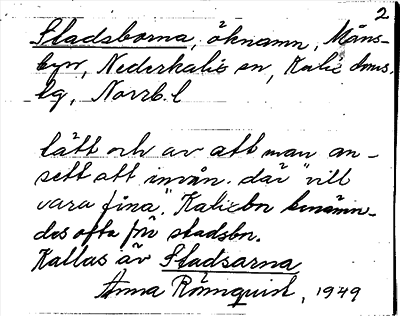 2
Stadsborna, öknamn, Måns-
byn, Nederkalix sn, Kalix dms.
lg, Norrb. l
lätt och av att man an-
sett att invån. där "vill
vara fina". Kalixbor benämn-
des ofta för stadsbor.
Kallas äv Stadsarna
Anna Rönnquist, 1949